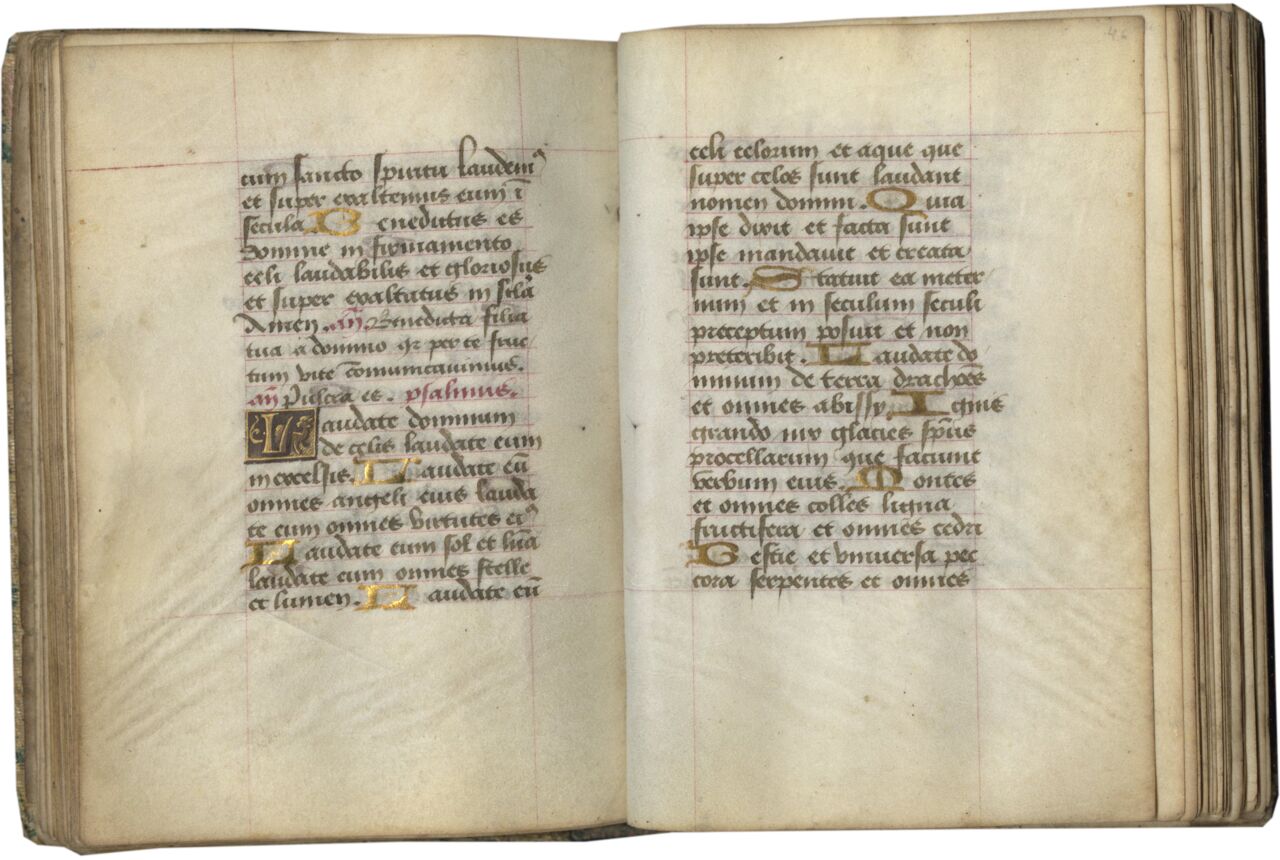 cum sancto spiritu laudemꝰ
et super exaltemus eum ī
secula. Benedictus es
domine in firmamento
celi laudabilis et gloriosus
et super exaltatus in sclā
Amen. añ Benedicta filia
tua a domino qꝛ per te fruc
tum vite cōmunicavimus.
añ Pulcra es. psalmus.
Laudate dominum
de celis laudate eum
in excelsis. Laudate eū
omnes angeli eius lauda
te eum omnes virtutes eiꝰ
Laudate eum sol et luna
laudate eum omnes stelle
et lumen. Laudate eū
46
celi celorum et aque que
super celos sunt laudant
nomen domini. Quia
ipse dixit et facta sunt
ipse mandavit et creata
sunt. Statuit ea in eter
num et in seculum seculi
preceptum posuit et non
preteribit. Laudate do
minum de terra drachões
et omnes abissy. Ignis
grando nix glacies spūs
procellarum que faciunt
verbum eius. Montes
et omnes colles ligna
fructifera et omnes cedri
Bestie et universa pec
cora serpentes et omnes